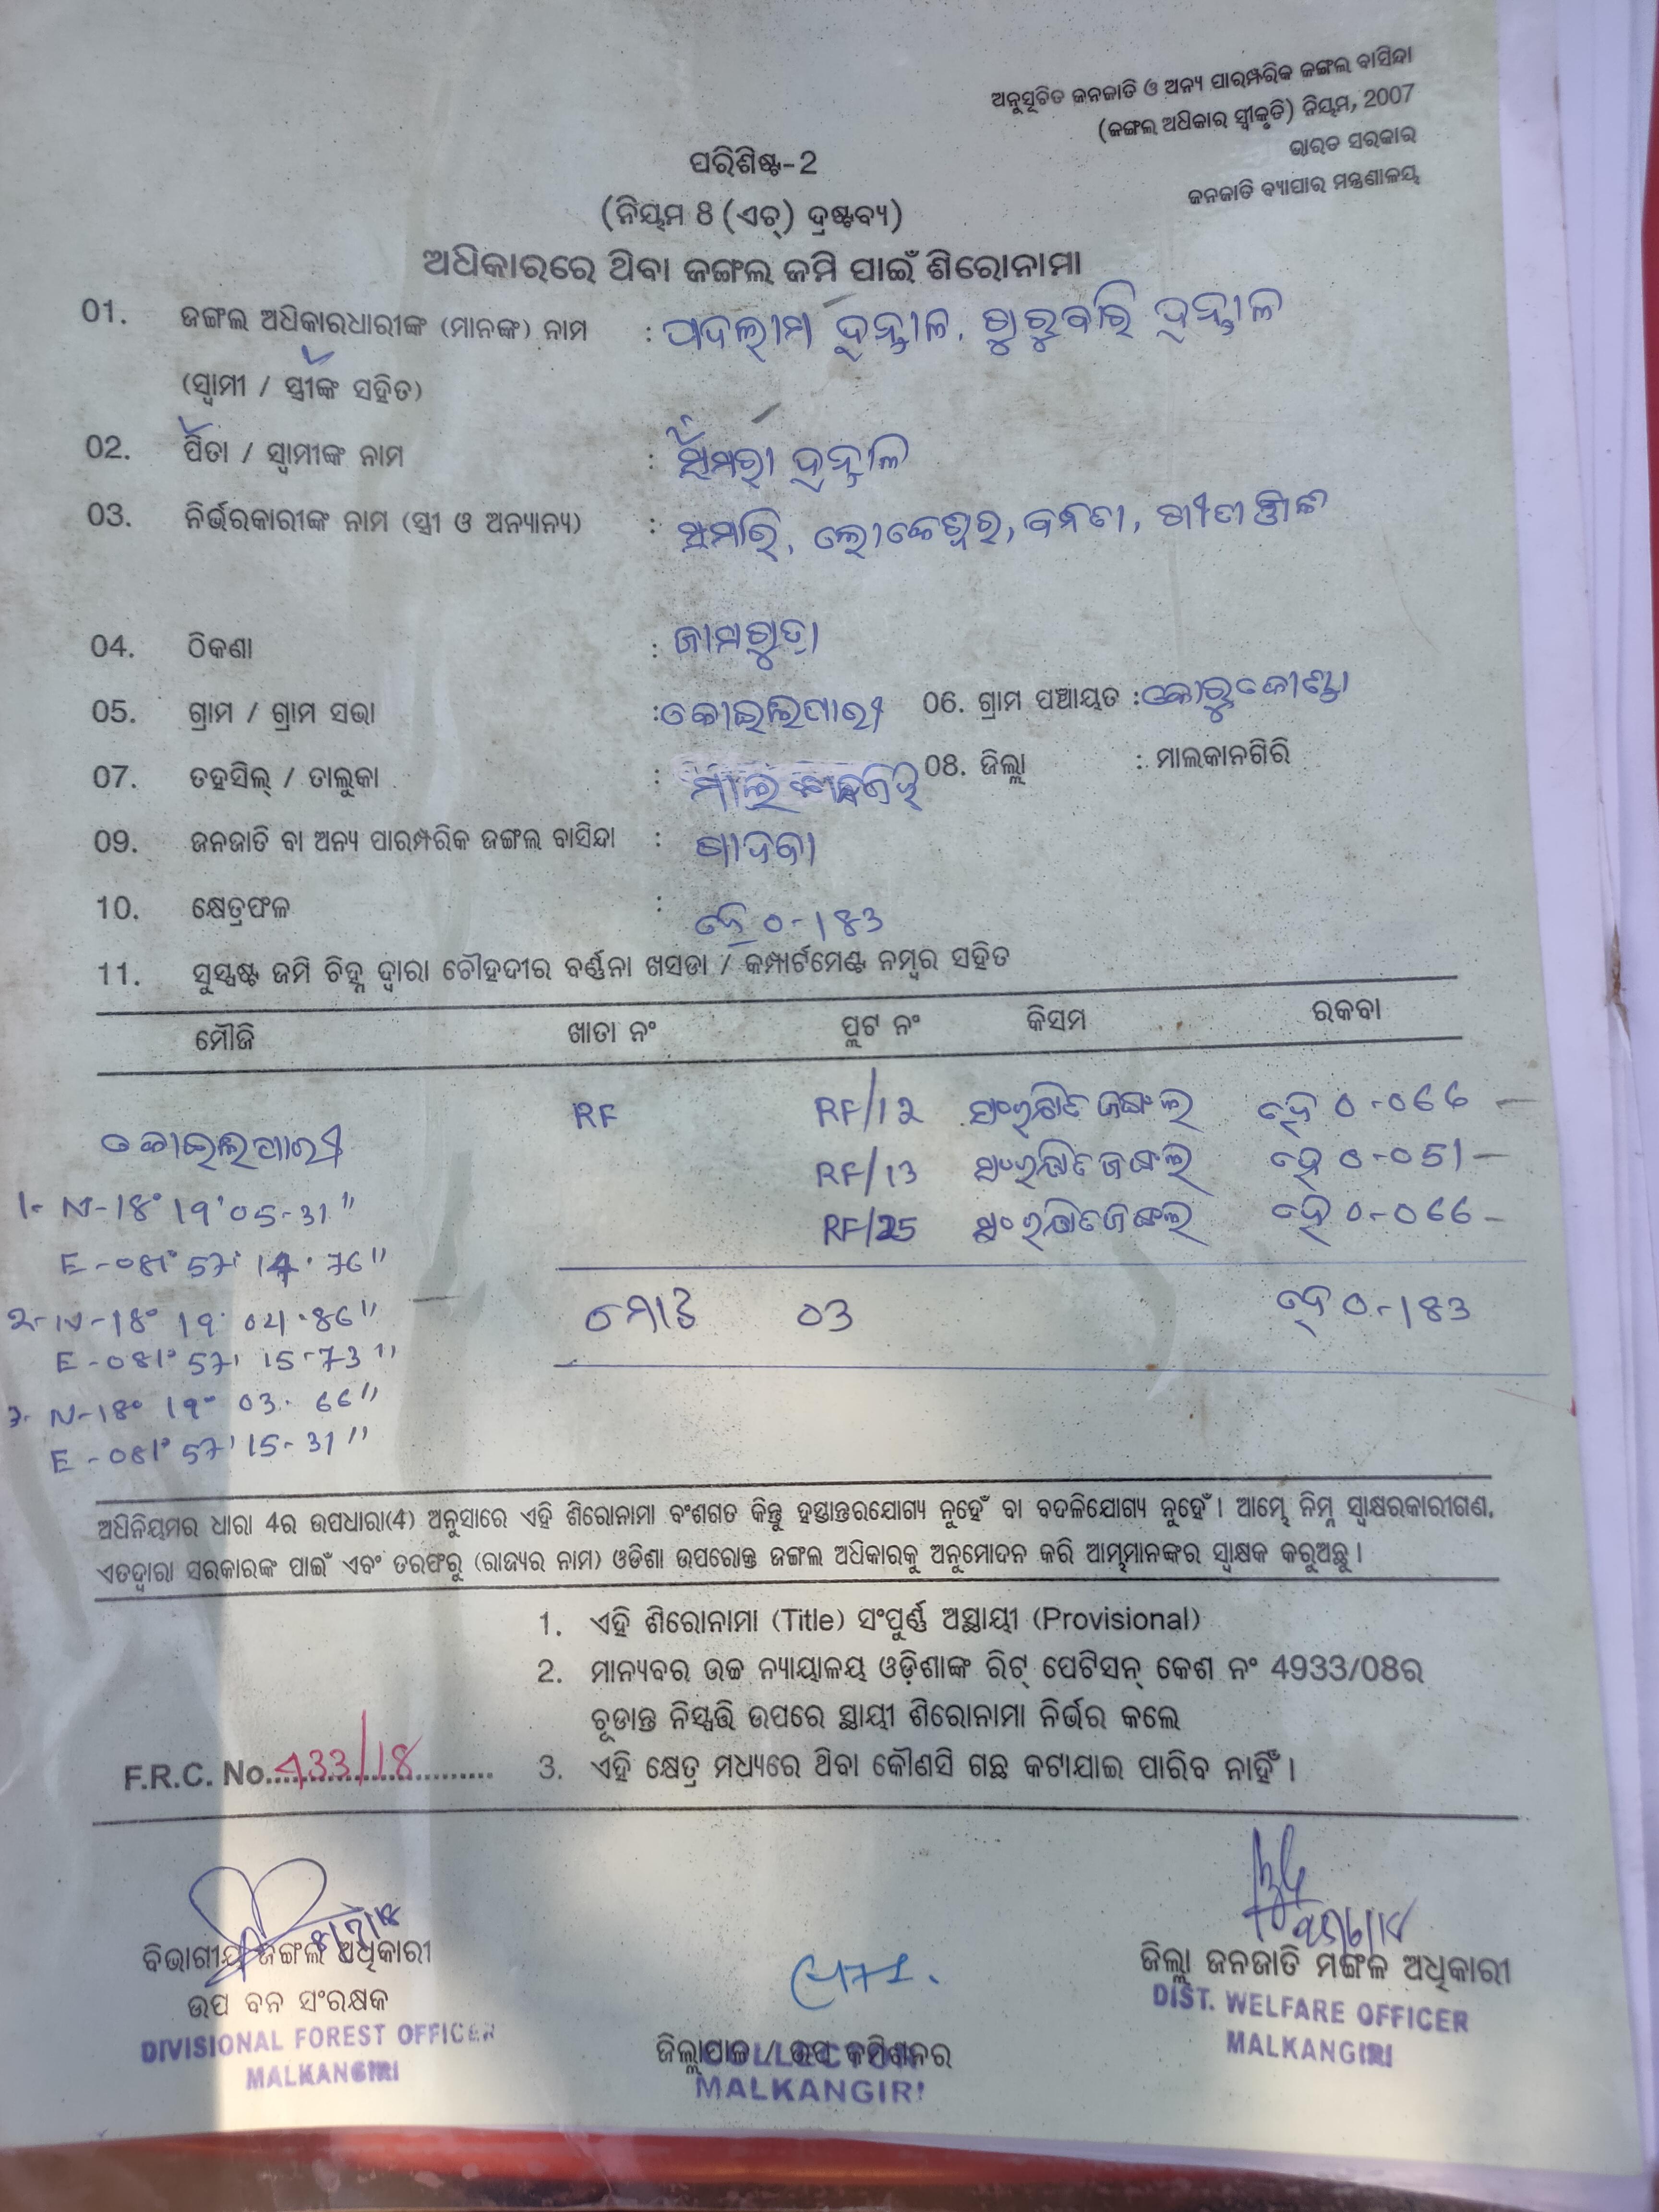 ଅନୁସୂଚିତ ଜନଜାତି ଓ ଅନ୍ୟ ପାରମ୍ପରିକ ଜଙ୍ଗଲ ବାସିନ୍ଦା
(ଜଙ୍ଗଲ ଅଧିକାର ସ୍ୱୀକୃତି) ନିୟମ, 2007
ଭାରତ ସରକାର
ଜନଜାତି ବ୍ୟାପାର ମନ୍ତ୍ରଣାଳୟ
ପରିଶିଷ୍ଟ-2
(ନିୟମ 8 (ଏଚ୍) ଦ୍ରଷ୍ଟବ୍ୟ)
ଅଧିକାରରେ ଥିବା ଜଙ୍ଗଲ ଜମି ପାଇଁ ଶିରୋନାମା
01. ଜଙ୍ଗଲ ଅଧିକାରଧାରୀଙ୍କ (ମାନଙ୍କ) ନାମ : ପଦଲାମ ହନ୍ତାଳ, ଗୁରୁବାରି ହନ୍ତାଳ
(ସ୍ୱାମୀ / ସ୍ତ୍ରୀଙ୍କ ସହିତ)
02. ପିତା / ସ୍ୱାମୀଙ୍କ ନାମ : ହନ୍ତାଳ
03. ନିର୍ଭରକାରୀଙ୍କ ନାମ (ସ୍ତ୍ରୀ ଓ ଅନ୍ୟାନ୍ୟ) : ସମାରି, ଲୋକେଶ୍ୱର,
04. ଠିକଣା : ଜାମଗୁଡ଼ା
05. ଗ୍ରାମ / ଗ୍ରାମ ସଭା : କୋଇଲିପାରୀ 06. ଗ୍ରାମ ପଞ୍ଚାୟତ : କୋରୁକୋଣ୍ଡା
07. ତହସିଲ୍ / ତାଲୁକା : 08. ଜିଲ୍ଲା : ମାଲକାନଗିରି
09. ଜନଜାତି ବା ଅନ୍ୟ ପାରମ୍ପରିକ ଜଙ୍ଗଲ ବାସିନ୍ଦା : ଗାଦବା
10. କ୍ଷେତ୍ରଫଳ : ହେ 0-183
11. ସୁସ୍ପଷ୍ଟ ଜମି ଚିହ୍ନ ଦ୍ୱାରା ଚୌହଦୀର ବର୍ଣ୍ଣନା ଖସଡା / କମ୍ପାର୍ଟମେଣ୍ଟ ନମ୍ବର ସହିତ
ମୌଜି ଖାତା ନଂ ପ୍ଲଟ ନଂ କିସମ ରକବା
କୋଇଲିପାରୀ RF RF/12 ସଂରକ୍ଷିତ ଜଙ୍ଗଲ ହେ 0-066
RF/13 ସଂରକ୍ଷିତ ଜଙ୍ଗଲ ହେ 0-051
RF/25 ସଂରକ୍ଷିତ ଜଙ୍ଗଲ ହେ 0-066
1- N-18° 19' 05-31"
E-081° 57' 14.76"
ମୋଟ 03 ହେ 0-183
2- N-18° 19' 04.86"
E-081° 57' 15-73"
3- N-18° 19° 03. 66"
E-081° 57' 15-31"
ଅଧିନିୟମର ଧାରା 4ର ଉପଧାରା(4) ଅନୁସାରେ ଏହି ଶିରୋନାମା ବଂଶଗତ କିନ୍ତୁ ହସ୍ତାନ୍ତରଯୋଗ୍ୟ ନୁହେଁ ବା ବଦଳିଯୋଗ୍ୟ ନୁହେଁ । ଆମ୍ଭେ ନିମ୍ନ ସ୍ୱାକ୍ଷରକାରୀଗଣ,
ଏତଦ୍ୱାରା ସରକାରଙ୍କ ପାଇଁ ଏବଂ ତରଫରୁ (ରାଜ୍ୟର ନାମ) ଓଡିଶା ଉପରୋକ୍ତ ଜଙ୍ଗଲ ଅଧିକାରକୁ ଅନୁମୋଦନ କରି ଆମ୍ଭମାନଙ୍କର ସ୍ୱାକ୍ଷକ କରୁଅଛୁ ।
1. ଏହି ଶିରୋନାମା (Title) ସଂପୁର୍ଣ୍ଣ ଅସ୍ଥାୟୀ (Provisional)
2. ମାନ୍ୟବର ଉଚ୍ଚ ନ୍ୟାୟାଳୟ ଓଡ଼ିଶାଙ୍କ ରିଟ୍ ପେଟିସନ୍ କେଶ ନଂ 4933/08ର
ଚୂଡାନ୍ତ ନିସ୍ପତ୍ତି ଉପରେ ସ୍ଥାୟୀ ଶିରୋନାମା ନିର୍ଭର କଲେ
F.R.C. No. 433/18
3. ଏହି କ୍ଷେତ୍ର ମଧ୍ୟରେ ଥିବା କୌଣସି ଗଛ କଟାଯାଇ ପାରିବ ନାହିଁ ।
ବିଭାଗୀୟ ଜଙ୍ଗଲ ଅଧିକାରୀ
ଉପ ବନ ସଂରକ୍ଷକ
DIVISIONAL FOREST OFFICER
MALKANGIRI
ଜିଲ୍ଲାପାଳ / ଉପ କମିଶନର
COLLECTOR
MALKANGIRI
ଜିଲ୍ଲା ଜନଜାତି ମଙ୍ଗଳ ଅଧିକାରୀ
DIST. WELFARE OFFICER
MALKANGIRI